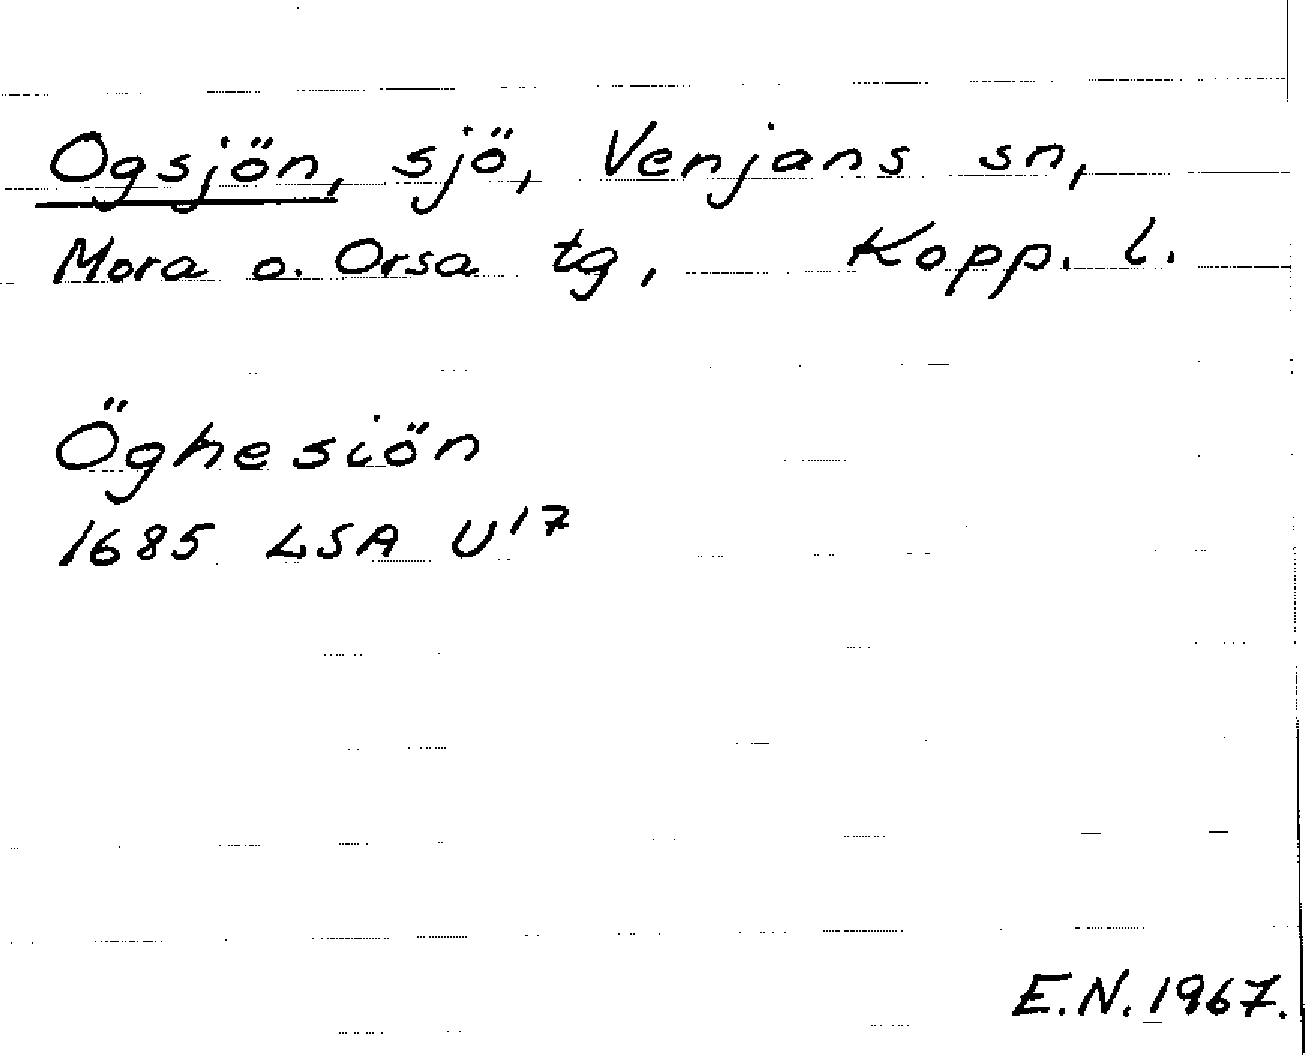 Ogsjön, sjö, Venjans sn,
Mora o. Orsa tg, Kopp. l.
Öghesiön
1685 LSA U17
E.N. 1967.